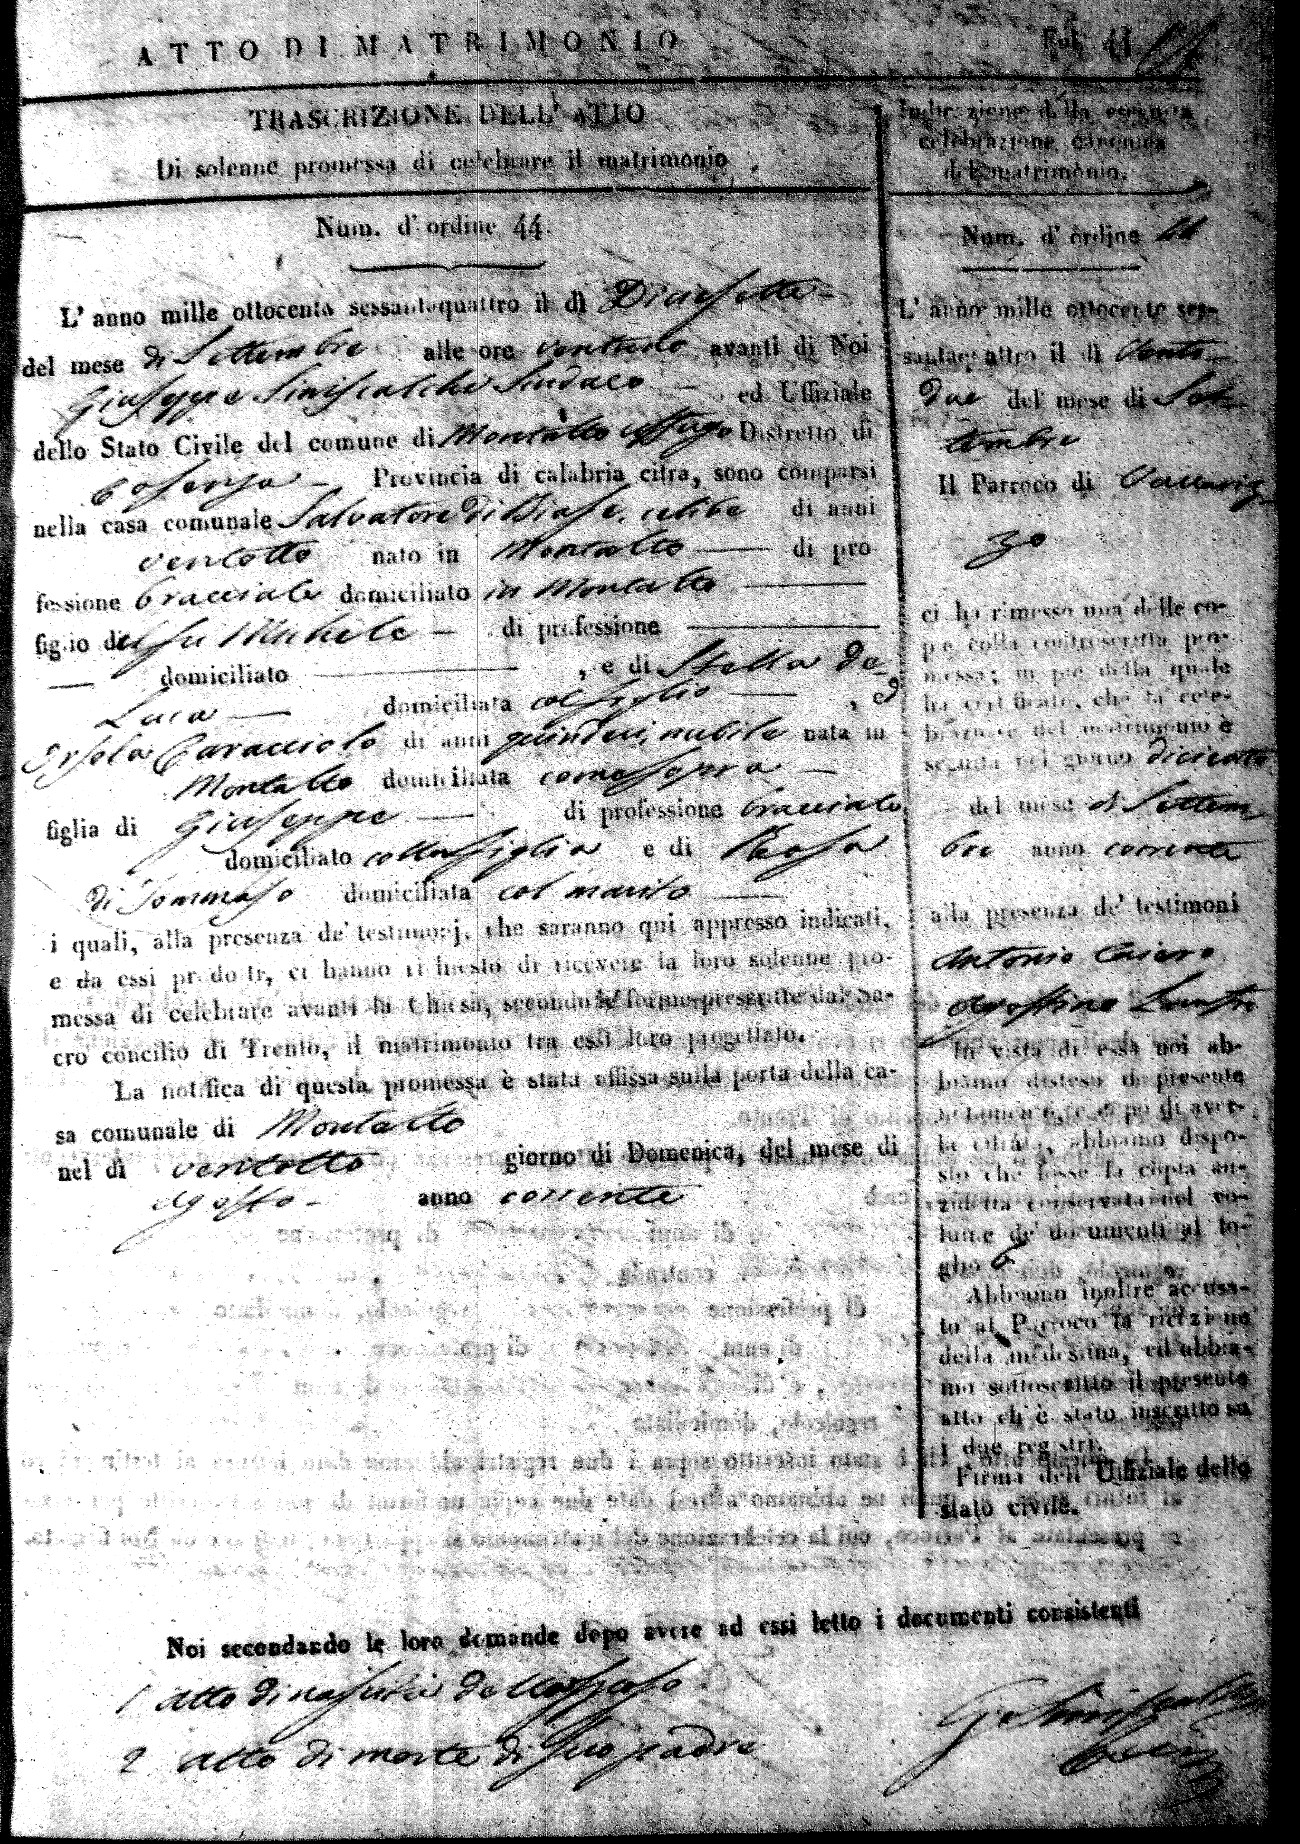 ATTO DI MATRIMONIO
Fol. 44
TRASCRIZIONE DELL' ATTO
Di solenne promessa di celebrare il matrimonio.
Num. d' ordine 44.
L' anno mille ottocento sessantaquattro il dì Diciasette
del mese di Settembre alle ore ventuno avanti di Noi
Giuseppe Siniscalchi Sindaco ed Uffiziale
dello Stato Civile del comune di Montalto Uffugo Distretto di
Cosenza Provincia di calabria citra, sono comparsi
nella casa comunale Salvatore di Biase, celibe di anni
ventotto nato in Montalto di pro
fessione bracciale domiciliato in Montalto
figlio del fu Michele di professione
domiciliato , e di Stella de
Luca domiciliata col figlio , ed
Orsola Caracciolo di anni quindici, nubile nata in
Montalto domiciliata come sopra
figlia di Giuseppe di professione bracciale
domiciliato colla figlia e di Rosa
di Tommaso domiciliata col marito
i quali, alla presenza de' testimonj, che saranno qui appresso indicati,
e da essi prodotti, ci hanno richiesto di ricevere la loro solenne pro-
messa di celebrare avanti la Chiesa, secondo le forme prescritte dal Sa-
cro concilio di Trento, il matrimonio tra essi loro progettato.
La notifica di questa promessa è stata affissa sulla porta della ca-
sa comunale di Montalto
nel dì ventotto giorno di Domenica, del mese di
Agosto anno corrente
Noi secondando le loro domande dopo avere ad essi letto i documenti consistenti
1 Atto di nascita dello sposo
2 Atto di morte di suo padre
Indicazione della seguita
celebrazione canonica
del matrimonio.
Num. d' ordine 44
L' anno mille ottocento ses-
santaquattro il dì Venti
due del mese di Set
tembre
Il Parroco di Vaccariz
zo
ci ha rimesso una delle co-
pie colla controscritta pro-
messa; in piè della quale
ha certificato, che la cele-
brazione del matrimonio è
seguita nel giorno diciotto
del mese di Settem
bre anno corrente
alla presenza de' testimoni
Antonio Cairo
Agostino
In vista di essa noi ab-
biamo disteso il presente
notamento, e dopo di aver-
la cifrata, abbiamo dispo-
sto che fosse la copia an-
zidetta conservata nel vo-
lume de' documenti al fo-
glio 6
Abbiamo inoltre accusa-
to al Parroco la ricezione
della medesima, ed abbia-
mo sottoscritto il presente
atto ch' è stato inscritto su
i due registri.
Firma dell' Uffiziale dello
stato civile.
G. Siniscalchi